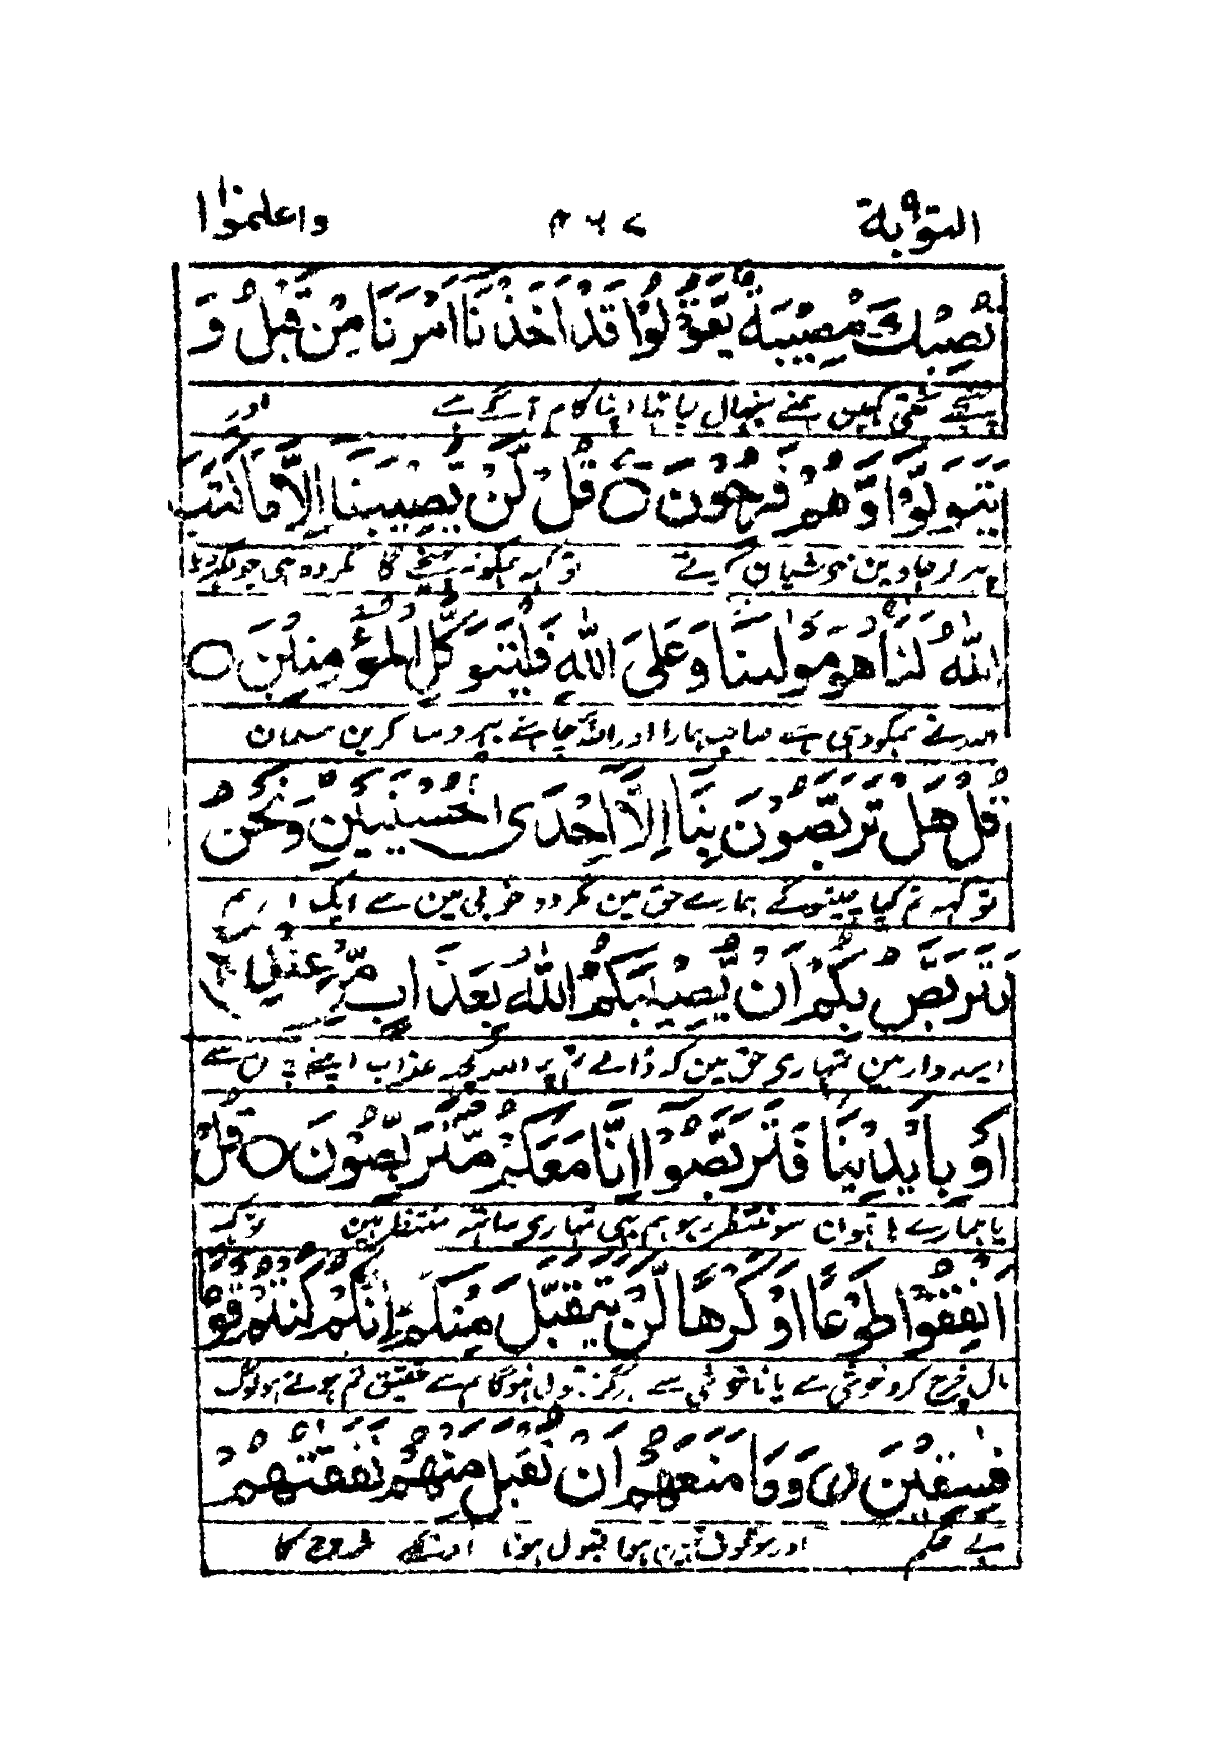 التوبة ٩ ٢٦٧ واعلموا ١٠
تُصِبْكَ مُصِيبَةٌ يَّقُوْلُوْا قَدْ اَخَذْنَا اَمْرَنَا مِنْ قَبْلُ وَ
سختی کہین ہمنے سنبھال لیا تھا اپنا کام آگے سے اور
يَتَوَلَّوْا وَّهُمْ فَرِحُوْنَ ○ قُلْ لَّنْ يُّصِيْبَنَا اِلَّا مَا كَتَبَ
پھر کر جاوین خوشیان کرتے تو کہہ ہمکو نہ پہنچے گا مگر وہ ہی جو لکھ دیا
اللّٰهُ لَنَا هُوَ مَوْلٰىنَا وَعَلَى اللّٰهِ فَلْيَتَوَكَّلِ الْمُؤْمِنِيْنَ ○
اللہ نے ہمکو وہی ہے صاحب ہمارا اور اللہ چاہئے بھروسا کرین مسلمان
قُلْ هَلْ تَرَبَّصُوْنَ بِنَا اِلَّا اِحْدَى الْحُسْنَيَيْنِ وَنَحْنُ
تو کہہ تم کیا چیتوگے ہمارے حق مین مگر دو خوبی مین سے ایک اور ہم
نَتَرَبَّصُ بِكُمْ اَنْ يُّصِيْبَكُمُ اللّٰهُ بِعَذَابٍ مِّنْ عِنْدِهٖ
امیدوار مین تمہاری حق مین کہ ڈالے تم پر اللہ کچھ عذاب اپنے پاس سے
اَوْ بِاَيْدِيْنَا فَتَرَبَّصُوْا اِنَّا مَعَكُمْ مُّتَرَبِّصُوْنَ ○ قُلْ
یا ہمارے ہاتھوان سو منتظر رہو ہم بھی تمہاری ساتھہ منتظر ہین تو کہہ
اَنْفِقُوْا طَوْعًا اَوْ كَرْهًا لَّنْ يُّتَقَبَّلَ مِنْكُمْ اِنَّكُمْ كُنْتُمْ قَوْمًا
مال خرچ کرو خوشی سے یا ناخوشی سے ہرگز قبول نہوگا تم سے تحقیق تم ہوئے ہو لوگ
فٰسِقِيْنَ وَمَا مَنَعَهُمْ اَنْ تُقْبَلَ مِنْهُمْ نَفَقٰتُهُمْ
بے حکم اور موقوف نہین ہوا قبول ہونا اونکے خرچ کا